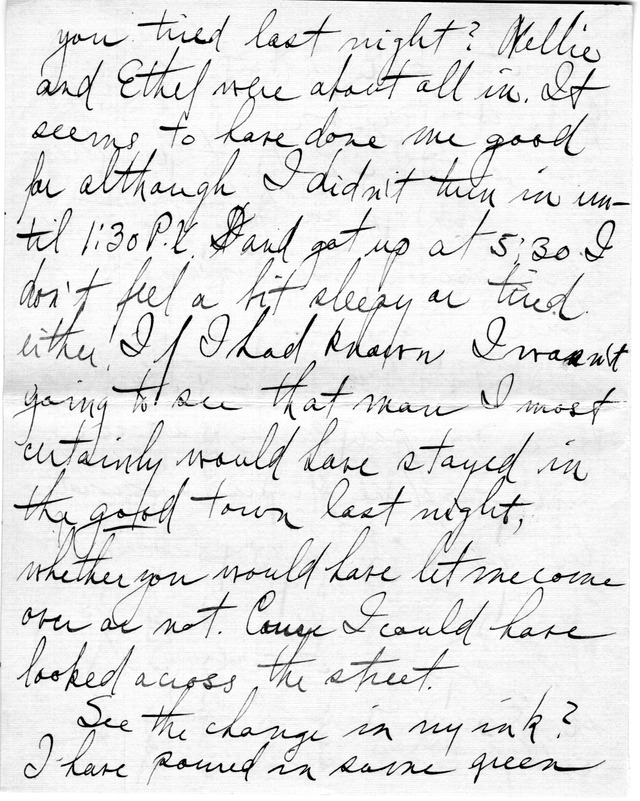 you tired last night? Nellie
and Ethel were about all in. It
seems to have done me good
for although I didn't turn in un-
til 1:30 P.X. and got up at 5:30 I
don't feel a bit sleepy or tired
either. If I had known I wasn't
going to see that man I most
certainly would have stayed in
the good town last night,
whether you would have let me come
over or not. Couse I could have
looked across the street.
See the change in my ink?
I have poured in some green